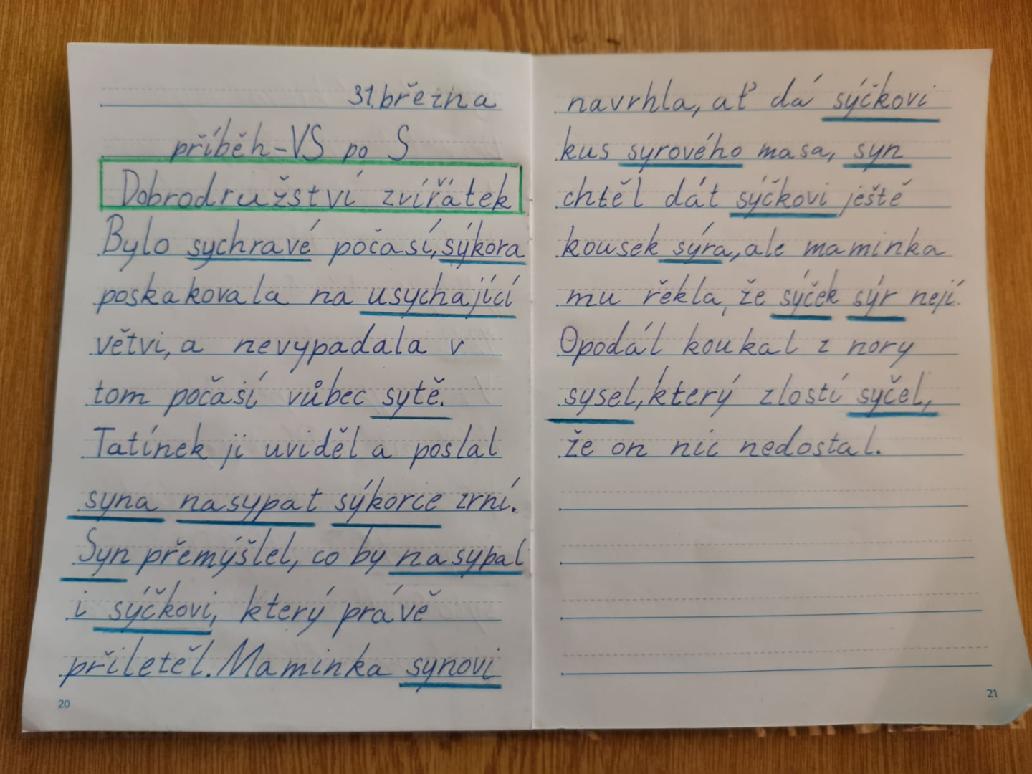 31. března
příběh-VS po S
Dobrodružství zvířátek
Bylo sychravé počasí, sýkora
poskakovala na usychající
větvi, a nevypadala v
tom počasí vůbec sytě.
Tatínek ji uviděl a poslal
syna nasypat sýkorce zrní.
Syn přemýšlel, co by nasypal
i sýčkovi, který právě
přiletěl. Maminka synovi
20
navrhla, ať dá sýčkovi
kus syrového masa, syn
chtěl dát sýčkovi ještě
kousek sýra, ale maminka
mu řekla, že sýček sýr nejí.
Opodál koukal z nory
sysel, který zlostí syčel,
že on nic nedostal.
21